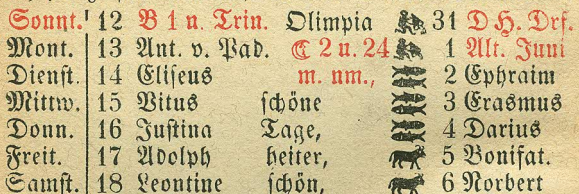 Sonnt. 12 B 1 n. Trin. Olimpia 31 D H. Drf.
Mont. 13 Ant. v. Pad. ☾ 2 u. 24 1 Alt. Juni
Dienst. 14 Eliseus m. nm., 2 Ephraim
Mittw. 15 Vitus schöne 3 Erasmus
Donn. 16 Justina Tage, 4 Darius
Freit. 17 Adolph heiter, 5 Bonifat.
Samst. 18 Leontine schön, 6 Norbert